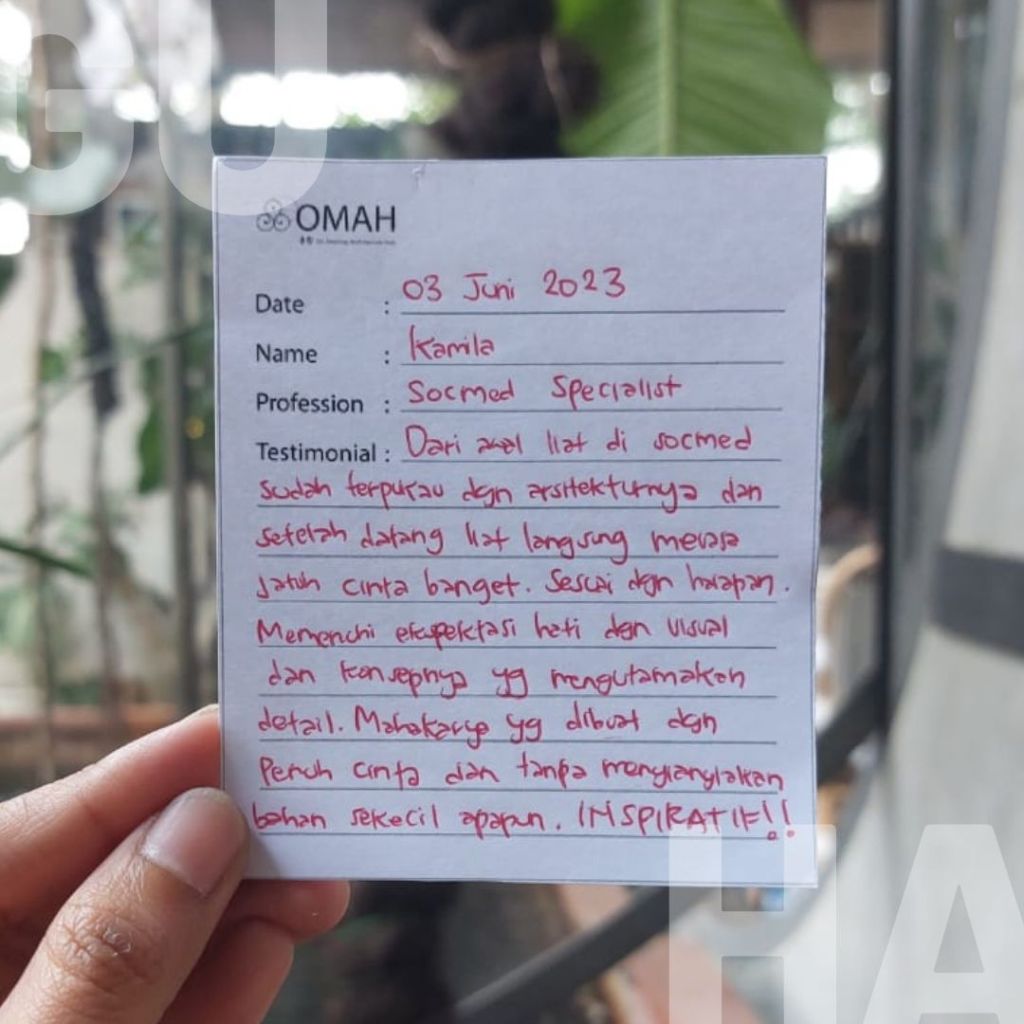 GU
OMAH
Date : 03 Juni 2023
Name : Kamila
Profession : Socmed Specialist
Testimonial : Dari awal liat di socmed
sudah terpukau dgn arsitekturnya dan
setelah datang liat langsung merasa
jatuh cinta banget. Sesuai dgn harapan.
Memenuhi ekspektasi hati dgn visual
dan konsepnya yg mengutamakan
detail. Mahakarya yg dibuat dgn
Penuh cinta dan tanpa menyianyiakan
bahan sekecil apapun. INSPIRATIF!!
HA